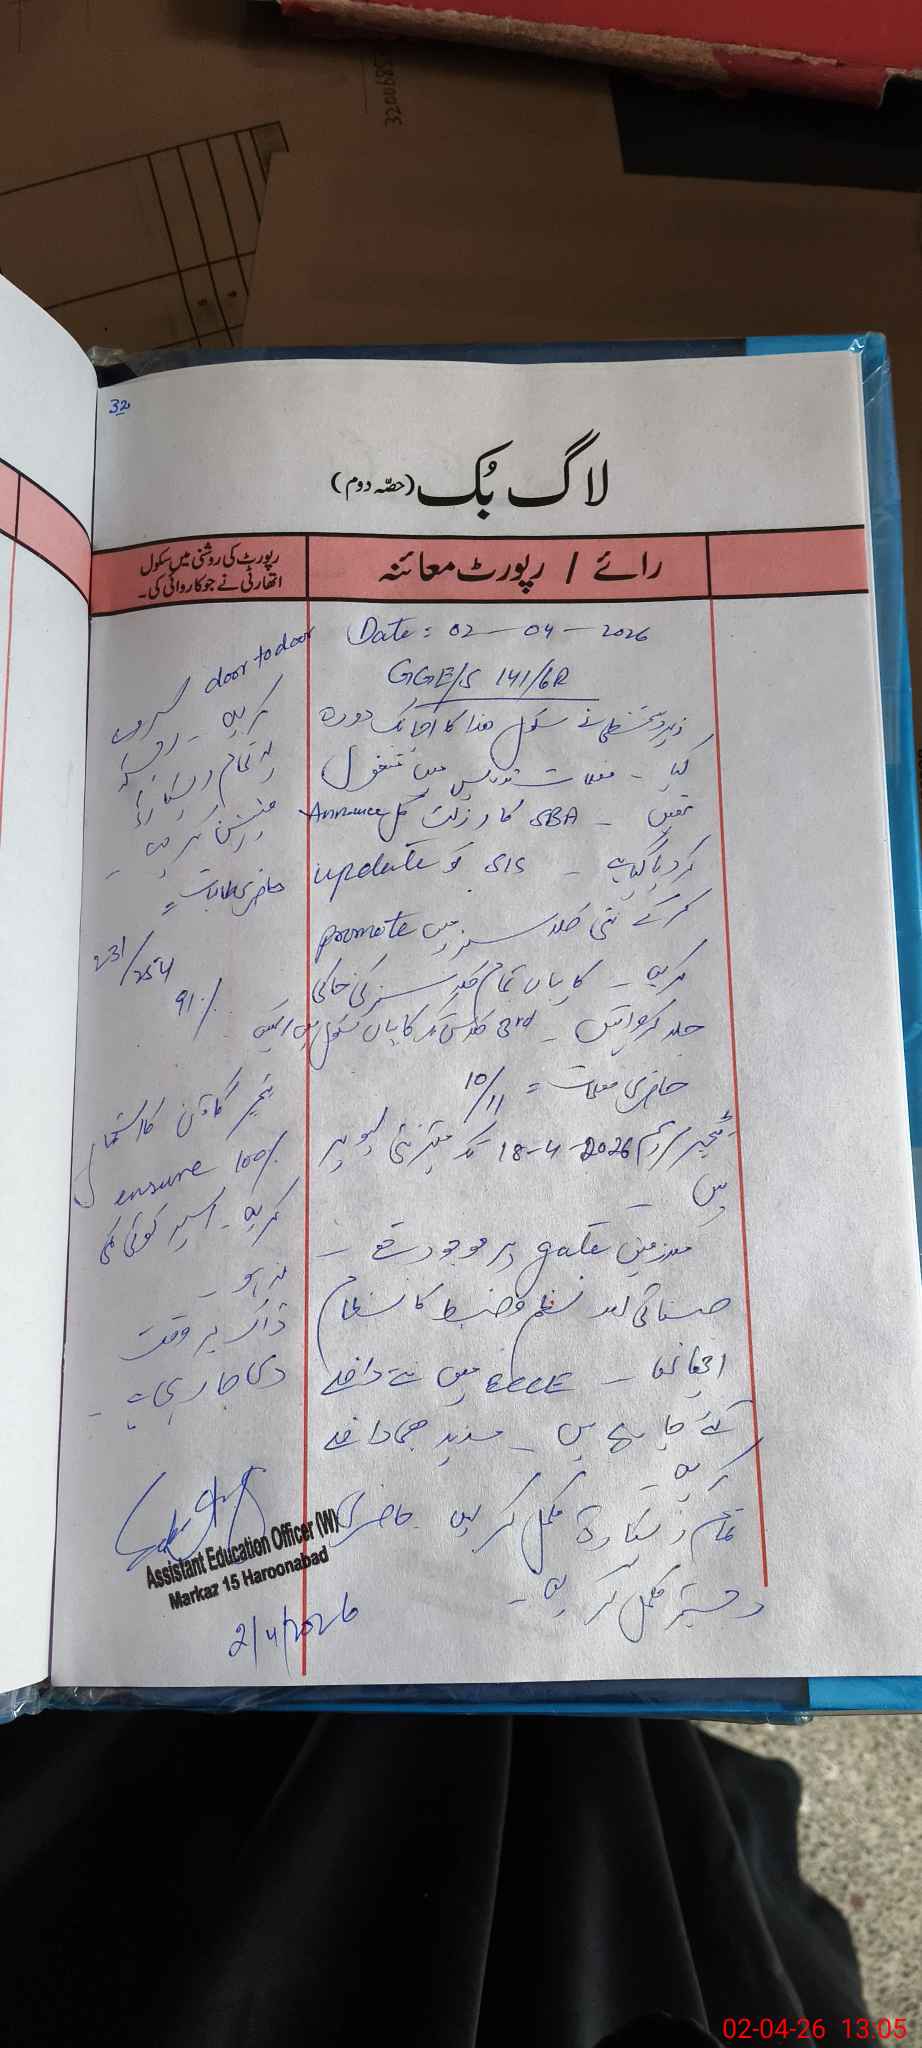 32
لاگ بُک (حصّہ دوم)
رائے / رپورٹ معائنہ
رپورٹ کی روشنی میں سکول
اتھارٹی نے جو کاروائی کی۔
Date: 02-04-2026
GGE/S 141/6R
زیر دستخطی نے سکول ھذا کا اچانک دورہ
کیا - معلمات تدریس میں مشغول
تھیں - SBA کا رزلٹ Announce
کر دیا گیا ہے - SIS کو update
کر کے نئی کلاسز میں promote
کریں - کاپیاں تمام کلاسز کی
جلد کروائیں - 3rd کاپیاں
حاضری معلمات = 10/11
ٹیچر 18-4-2026 تک
ہیں -
ملازمین gate پر موجود تھے -
صفائی اور نظم و ضبط کا نظام
اچھا تھا - ECCE میں نئے داخلے
کئے جا رہے ہیں - مزید بھی داخلے
کریں -
تمام ریکارڈ مکمل کریں حاضری
رجسٹر مکمل کریں -
door to door
کریں -
تمام ریکارڈ
کریں -
حاضری طالبات =
231/254
91%
ٹیچر گائیڈ کا استعمال
ensure 100%
کریں - اس میں کوئی کمی
نہ ہو -
ڈاک بر وقت
دی جا رہی ہے -
Assistant Education Officer (W)
Markaz 15 Haroonabad
2/4/2026
3200685
02-04-26 13:05